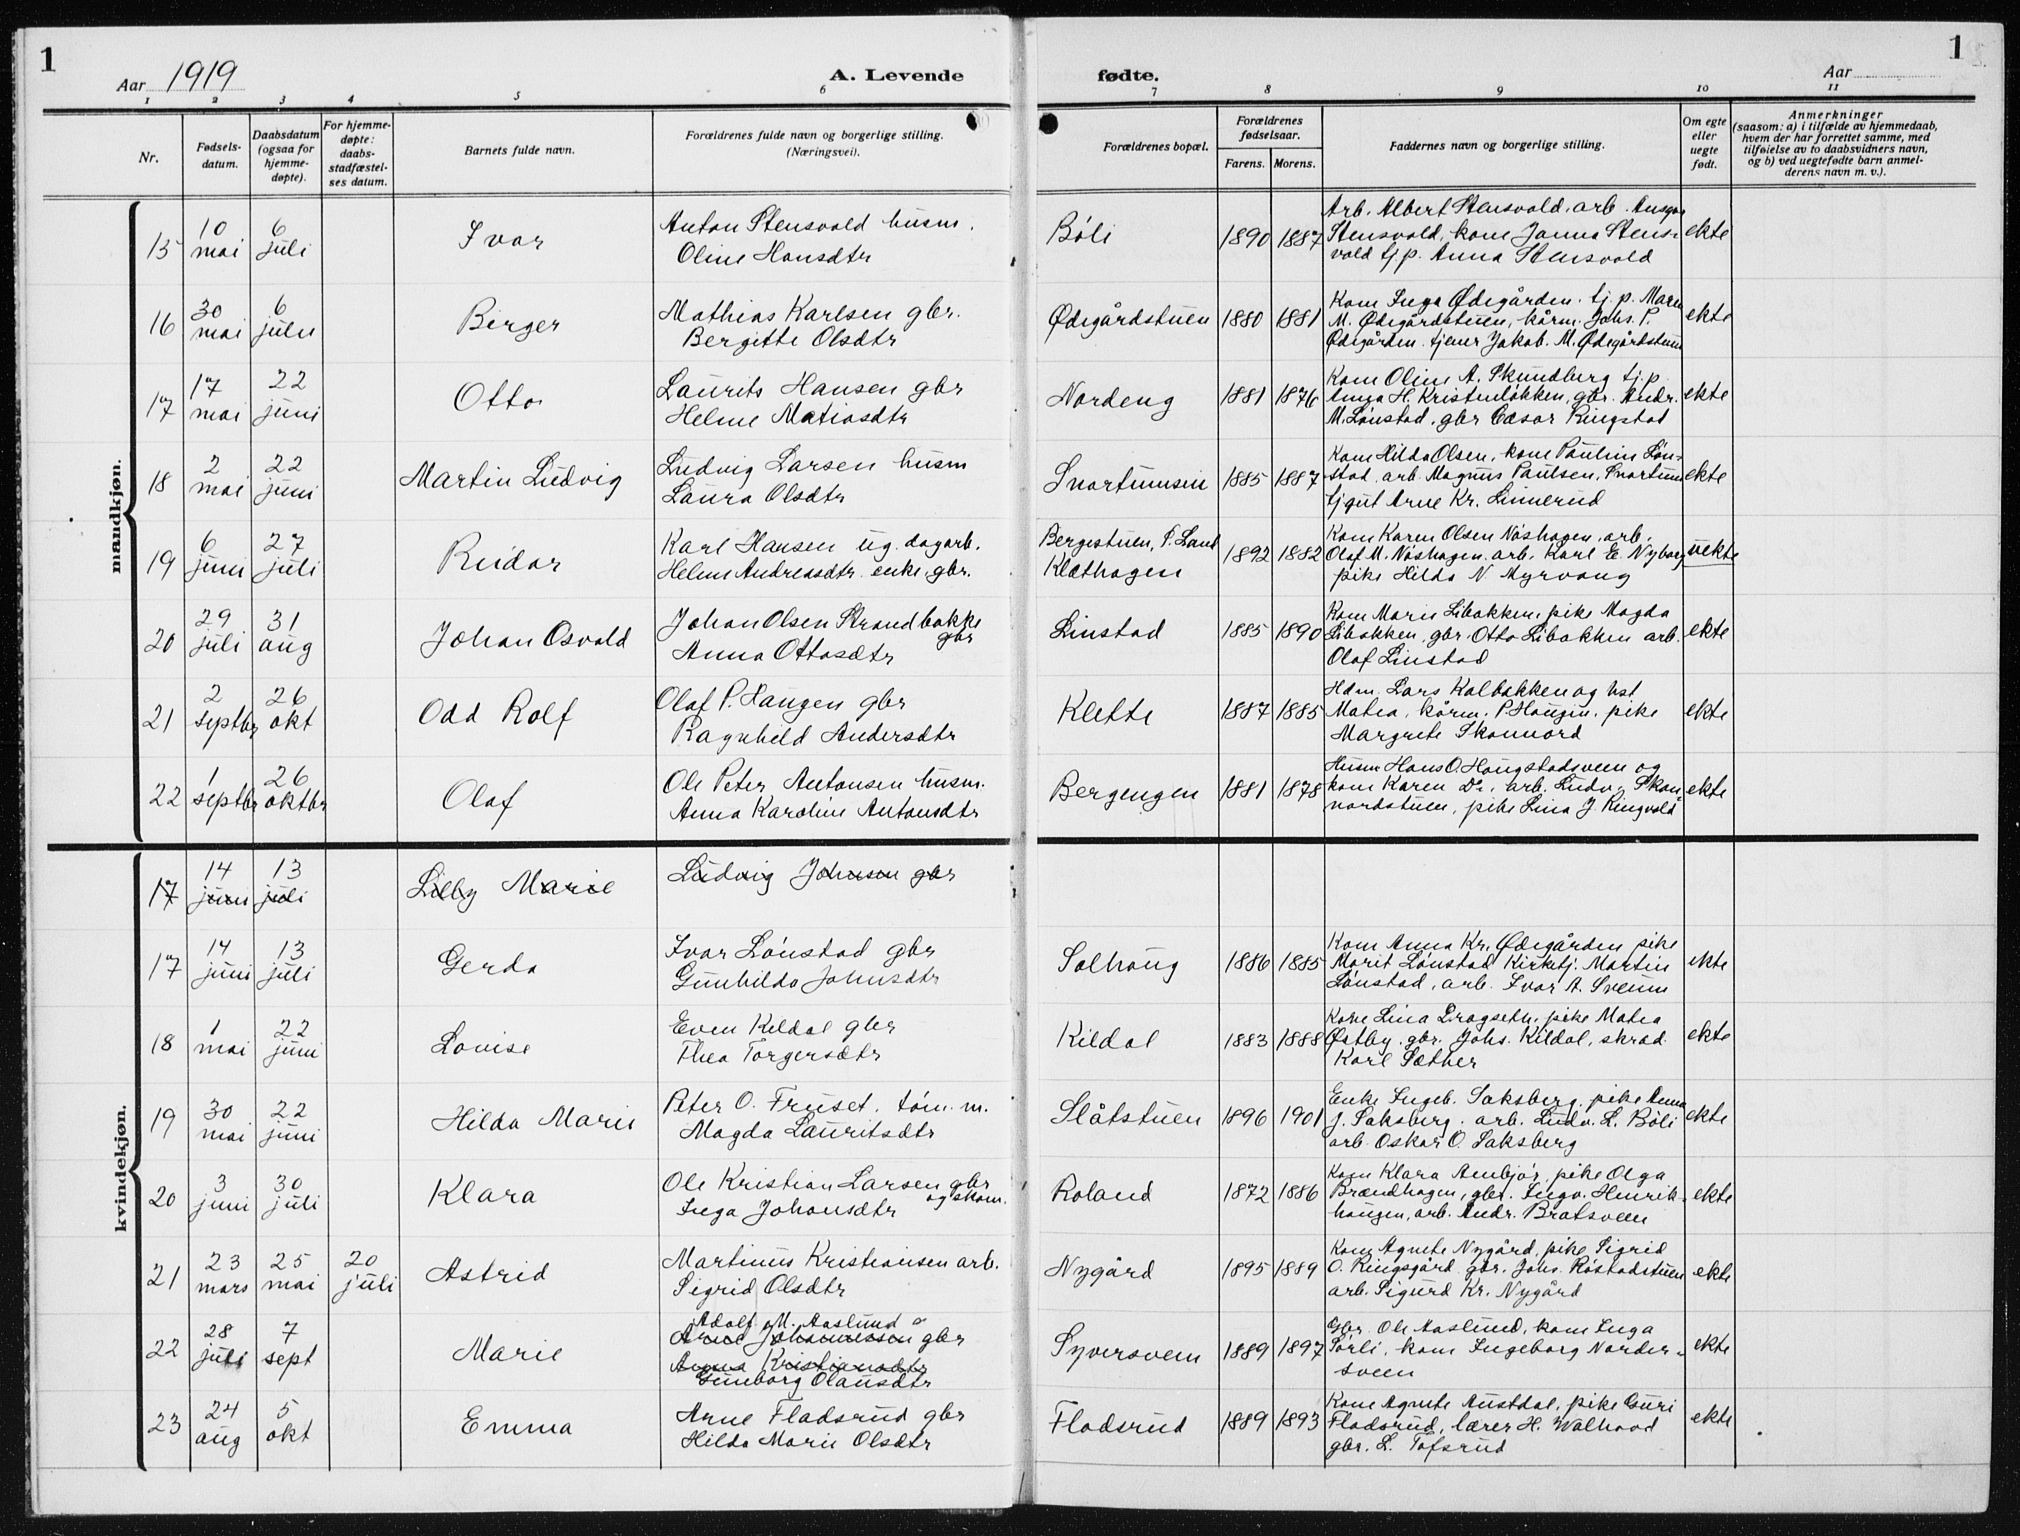 1
Aar 1919
A. Levende
fødte.
Aar
1
1 2 3 4 5 6 7 8 9 10 11
Nr.
Fødsels-
datum.
Daabsdatum
(ogsaa for
hjemme-
døpte).
For hjemme-
døpte:
daabs-
stadfæstel-
ses datum.
Barnets fulde navn.
Forældrenes fulde navn og borgerlige stilling.
(Næringsvei).
Forældrenes bopæl.
Forældrenes
fødselsaar.
Farens. Morens.
Faddernes navn og borgerlige stilling.
Om egte
eller
uegte
født.
Anmerkninger
(saasom: a) i tilfælde av hjemmedaab,
hvem der har forrettet samme, med
tilføielse av to daabsvidners navn,
og b) ved uegtefødte barn anmel-
derens navn m. v.).
mandkjøn.
15
10
mai
6
juli
Ivar
Anton Stensvold husm.
Oline Hansdtr
Bøli
1890 1887
Arb. Albert Stensvold, arb. Ansgar
Stensvold, kone Janna Stens-
vold tj.p. Anna Stensvold
ekte
16
30
mai
6
juli
Birger
Mathias Karlsen gbr.
Bergitte Olsdtr
Ødegårdstuen
1880 1881
Kone Inga Ødegården. tj. p. Maren
M. Ødegårdstuen, kårm. Johs. P.
Ødegården. tjener Jakob. M. Ødegårdstuen
ekte
17
17
mai
22
juni
Otto
Laurits Hansen gbr
Helene Matiasdtr
Nordeng
1881 1876
Kone Oline A. Skundberg tj.p.
Anna H. Kristenløkken, gbr. Andr.
M. Lønstad, gbr Cæsar Ringstad
ekte
18
2
mai
22
juni
Martin Ludvig
Ludvig Larsen husm
Laura Olsdtr
Snortumsen
1885 1887
Kone Hilda Olsen, kone Pauline Løn-
stad, arb. Magnus Paulsen, Snortum
tj gut Arne Kr. Linnerud
ekte
19
6
juni
27
juli
Reidar
Karl Hansen ug. dagarb.
Helene Andreasdtr. enke, gbr.
Bergestuen, S. Land
Klæthagen
1892 1882
Kone Karen Olsen Nøshagen, arb.
Olaf M. Nøshagen, arb. Karl E. Nyborg
pike Hilda N. Myrvang
uekte
20
29
juli
31
aug
Johan Osvald
Johan Olsen Strandbakke
gbr
Anna Ottosdtr
Linstad
1885 1890
Kone Marie Libakken, pike Magda
Libakken, gbr. Otto Libakken arb.
Olaf Linstad
ekte
21
2
septbr
26
okt
Odd Rolf
Olaf P. Haugen gbr
Ragnhild Andersdtr
Klette
1887 1885
Hdm. Lars Kalbakken og hst
Matea, kårm. P. Haugen, pike
Margrete Skonnord
ekte
22
1
septbr
26
oktbr
Olaf
Ole Peter Antonsen husm.
Anna Karoline Antonsdtr
Bergengen
1881 1878
Husm Hans O. Haugstadsveen og
kone Karen Do, arb. Ludv. Skon-
nordstuen, pike Lina J Ringvold
ekte
kvindekjøn.
17
14
juni
13
juli
Lilly Marie
Ludvig Johnsen gbr
17
14
juni
13
juli
Gerda
Ivar Lønstad gbr
Gunhilda Johnsdtr
Solhaug
1886 1885
Kone Anna Kr. Ødegården pike
Marit Lønstad Kirketj. Martin
Lønstad, arb. Ivar A. Sveum
ekte
18
1
mai
22
juni
Lovise
Even Kildal gbr
Thea Torgersdtr
Kildal
1883 1888
Kone Lina Dragseth, pike Matea
Østby, gbr. Johs. Kildal, skræd.
Karl Sæther
ekte
19
30
mai
22
juni
Hilda Marie
Peter O. Fruset. tøm. m.
Magda Lauritsdtr
Slåtstuen
1896 1901
Enke Ingeb. Saksberg, pike Anna
J. Saksberg. arb. Ludv. L. Bøli
arb. Oskar O. Saksberg
ekte
20
3
juni
30
juli
Klara
Ole Kristian Larsen gbr
og skom.
Inga Johansdtr
Roland
1872 1886
Kone Klara Ambjør, pike Olga
Brændhagen, gbr. Ingv. Henrik-
haugen, arb. Andr. Bratsveen
ekte
21
23
mars
25
mai
20
juli
Astrid
Martinus Kristiansen arb.
Sigrid Olsdtr
Nygård
1895 1889
Kone Agnete Nygård, pike Sigrid
O. Ringsgård gbr. Johs. Røstadstuen
arb. Sigurd Kr. Nygård
ekte
22
28
juli
7
sept
Marie
Adolf M. Aaslund
Arne Johannessen gbr
Anna Kristiansdtr
Gunborg Olausdtr
Syversveen
1889 1897
Gbr. Ole Aaslund, kone Inga
Sørli, kone Ingeborg Norder-
sveen
ekte
23
24
aug
5
okt
Emma
Arne Fladsrud gbr
Hilda Marie Olsdtr
Fladsrud
1889 1893
Kone Agnete Austdal, pike Guri
Fladsrud, lærer H. Walhovd
gbr. L. Tofsrud
ekte